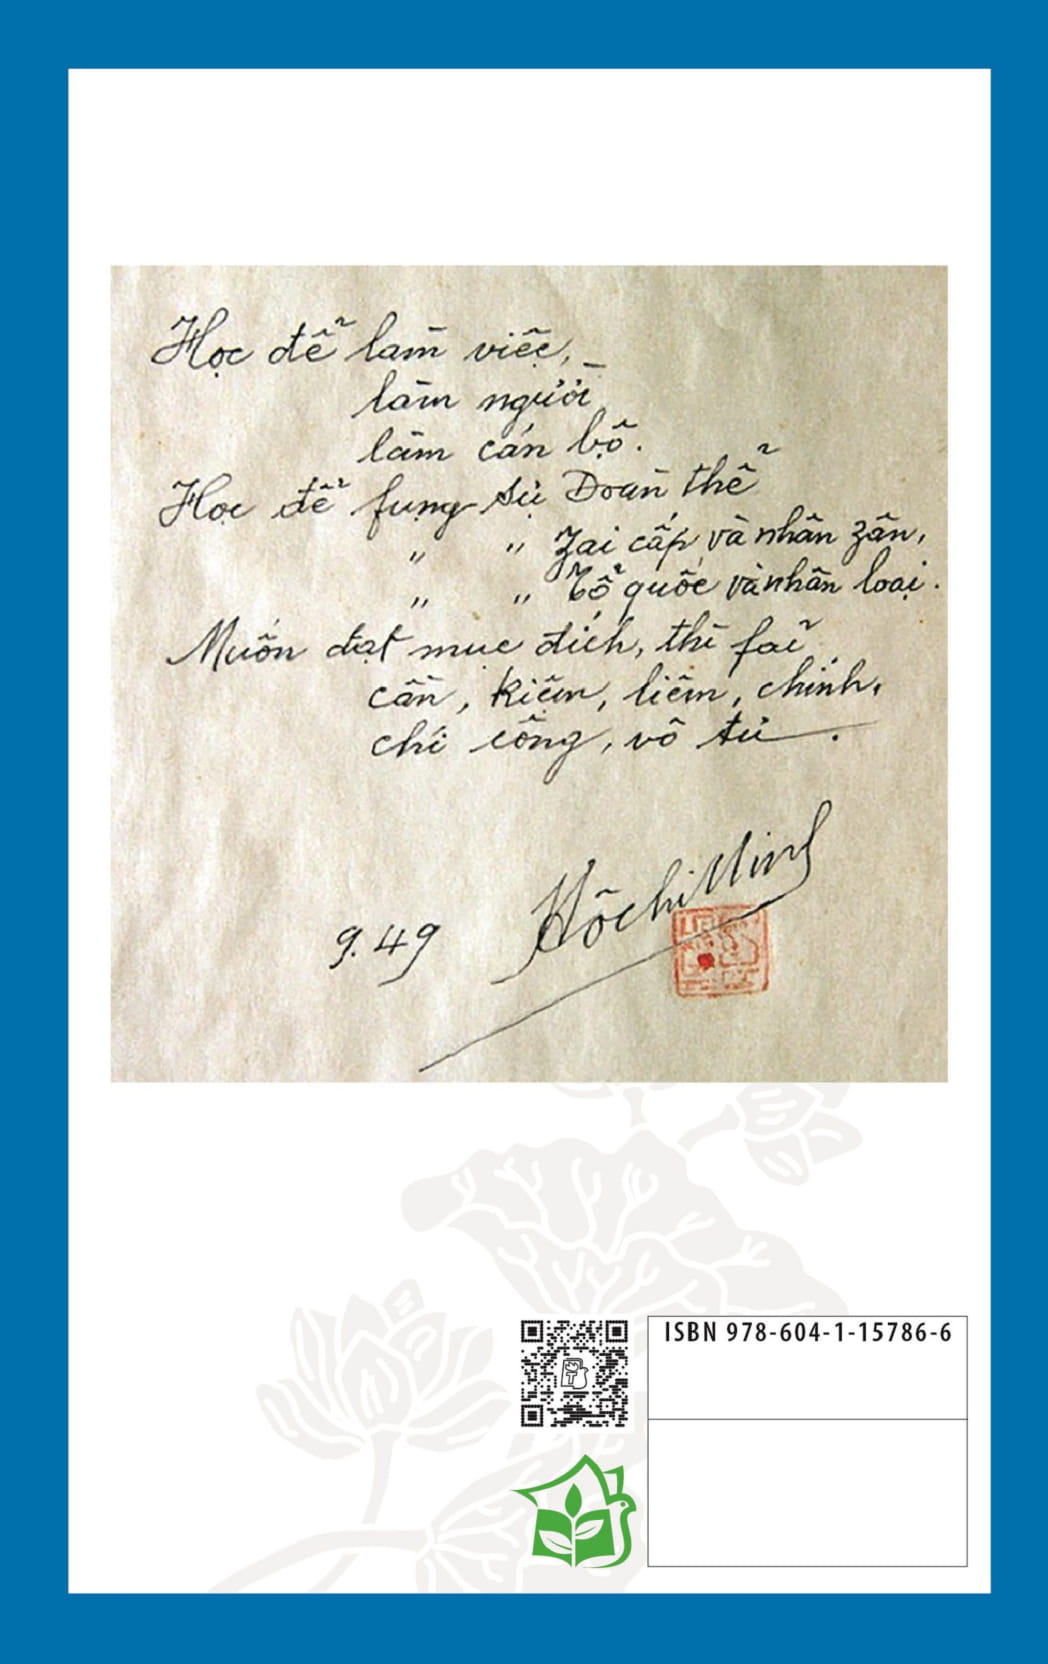 Học để làm việc,
làm người
làm cán bộ.
Học để fụng sự Đoàn thể
„ „ zai cấp và nhân zân,
„ „ Tổ quốc và nhân loại.
Muốn đạt mục đích, thì fải
cần, kiệm, liêm, chính,
chí công, vô tư.
9.49
Hồ chí Minh
ISBN 978-604-1-15786-6